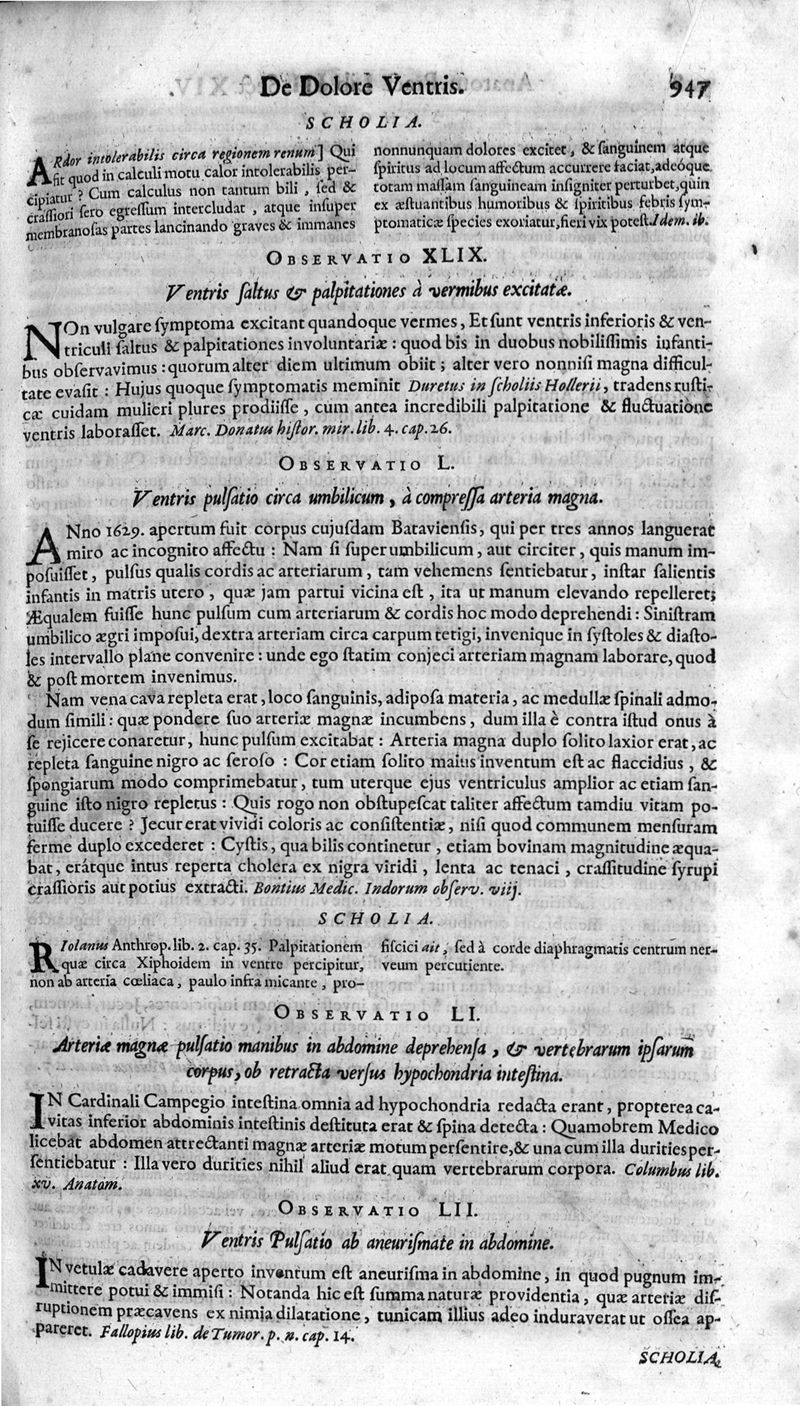 De Dolore Ventris. 947
SCHOLIA.
ARdor intolerabilis circa regionem renum] Qui
fit quod in calculi motu calor intolerabilis per-
cipiatur? Cum calculus non tantum bili, ſed &
craſſiori ſero egreſſum intercludat, atque inſuper
membranoſas partes lancinando graves & immanes
nonnunquam dolores excitet, & ſanguinem atque
ſpiritus ad locum affectum accurrere faciat, adeóque
totam maſſam ſanguineam inſigniter perturbet, quin
ex æſtuantibus humoribus & ſpiritibus febris ſym-
ptomaticæ ſpecies exoriatur, fieri vix poteſt. Idem. ib.
OBSERVATIO XLIX.
Ventris ſaltus & palpitationes à vermibus excitatæ.
NOn vulgare ſymptoma excitant quandoque vermes, Et ſunt ventris inferioris & ven-
triculi ſaltus & palpitationes involuntariæ: quod bis in duobus nobiliſſimis infanti-
bus obſervavimus: quorum alter diem ultimum obiit; alter vero nonniſi magna difficul-
tate evaſit: Hujus quoque ſymptomatis meminit Duretus in ſcholiis Hollerii, tradens ruſti-
cæ cuidam mulieri plures prodiiſſe, cum antea incredibili palpitatione & fluctuatione
ventris laboraſſet. Marc. Donatus hiſtor. mir. lib. 4. cap. 26.
OBSERVATIO L.
Ventris pulſatio circa umbilicum, à compreſſa arteria magna.
ANno 1629. apertum fuit corpus cujuſdam Batavienſis, qui per tres annos languerat
miro ac incognito affectu: Nam ſi ſuper umbilicum, aut circiter, quis manum im-
poſuiſſet, pulſus qualis cordis ac arteriarum, tam vehemens ſentiebatur, inſtar ſalientis
infantis in matris utero, quæ jam partui vicina eſt, ita ut manum elevando repelleret;
Æqualem fuiſſe hunc pulſum cum arteriarum & cordis hoc modo deprehendi: Siniſtram
umbilico ægri impoſui, dextra arteriam circa carpum tetigi, invenique in ſyſtoles & diaſto-
les intervallo plane convenire: unde ego ſtatim conjeci arteriam magnam laborare, quod
& poſt mortem invenimus.
Nam vena cava repleta erat, loco ſanguinis, adipoſa materia, ac medullæ ſpinali admo-
dum ſimili: quæ pondere ſuo arteriæ magnæ incumbens, dum illa è contra iſtud onus à
ſe rejicere conaretur, hunc pulſum excitabat: Arteria magna duplo ſolito laxior erat, ac
repleta ſanguine nigro ac ſeroſo: Cor etiam ſolito maius inventum eſt ac flaccidius, &
ſpongiarum modo comprimebatur, tum uterque ejus ventriculus amplior ac etiam ſan-
guine iſto nigro repletus: Quis rogo non obſtupeſcat taliter affectum tamdiu vitam po-
tuiſſe ducere? Jecur erat vividi coloris ac conſiſtentiæ, niſi quod communem menſuram
ferme duplo excederet: Cyſtis, qua bilis continetur, etiam bovinam magnitudine æqua-
bat, erátque intus reperta cholera ex nigra viridi, lenta ac tenaci, craſſitudine ſyrupi
craſſioris aut potius extracti. Bontius Medic. Indorum obſerv. viij.
SCHOLIA.
RIolanus Anthrop. lib. 2. cap. 35. Palpitationem
quæ circa Xiphoidem in ventre percipitur,
non ab arteria cœliaca, paulo infra micante, pro-
fiſcici ait, ſed à corde diaphragmatis centrum ner-
veum percutiente.
OBSERVATIO LI.
Arteriæ magnæ pulſatio manibus in abdomine deprehenſa, & vertebrarum ipſarum
corpus, ob retracta verſus hypochondria inteſtina.
IN Cardinali Campegio inteſtina omnia ad hypochondria redacta erant, propterea ca-
vitas inferior abdominis inteſtinis deſtituta erat & ſpina detecta: Quamobrem Medico
licebat abdomen attrectanti magnæ arteriæ motum perſentire, & una cum illa durities per-
ſentiebatur: Illa vero durities nihil aliud erat quam vertebrarum corpora. Columbus lib.
xv. Anatom.
OBSERVATIO LII.
Ventris Pulſatio ab aneuriſmate in abdomine.
IN vetulæ cadavere aperto inventum eſt aneuriſma in abdomine, in quod pugnum im-
mittere potui & immiſi: Notanda hic eſt ſumma naturæ providentia, quæ arteriæ diſ-
ruptionem præcavens ex nimia dilatatione, tunicam illius adeo induraverat ut oſſea ap-
pareret. Fallopius lib. de Tumor. p. n. cap. 14.
SCHOLIA.